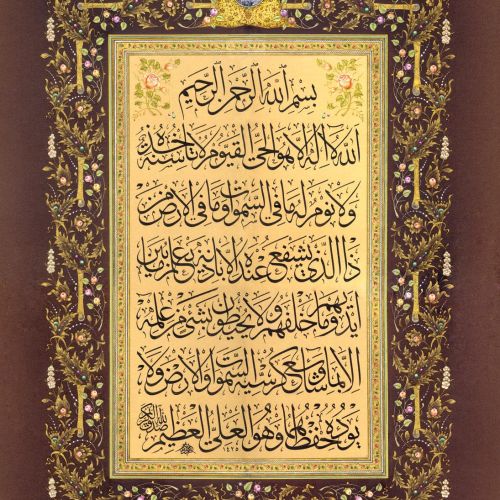 بسم الله الرحمن الرحيم
الله لا اله الا هو الحي القيوم لا تأخذه سنة
ولا نوم له ما في السموات وما في الارض من
ذا الذي يشفع عنده الا باذنه يعلم ما بين
ايديهم وما خلفهم ولا يحيطون بشيء من علمه
الا بما شاء وسع كرسيه السموات والارض ولا
يؤده حفظهما وهو العلي العظيم
١٤٢٥